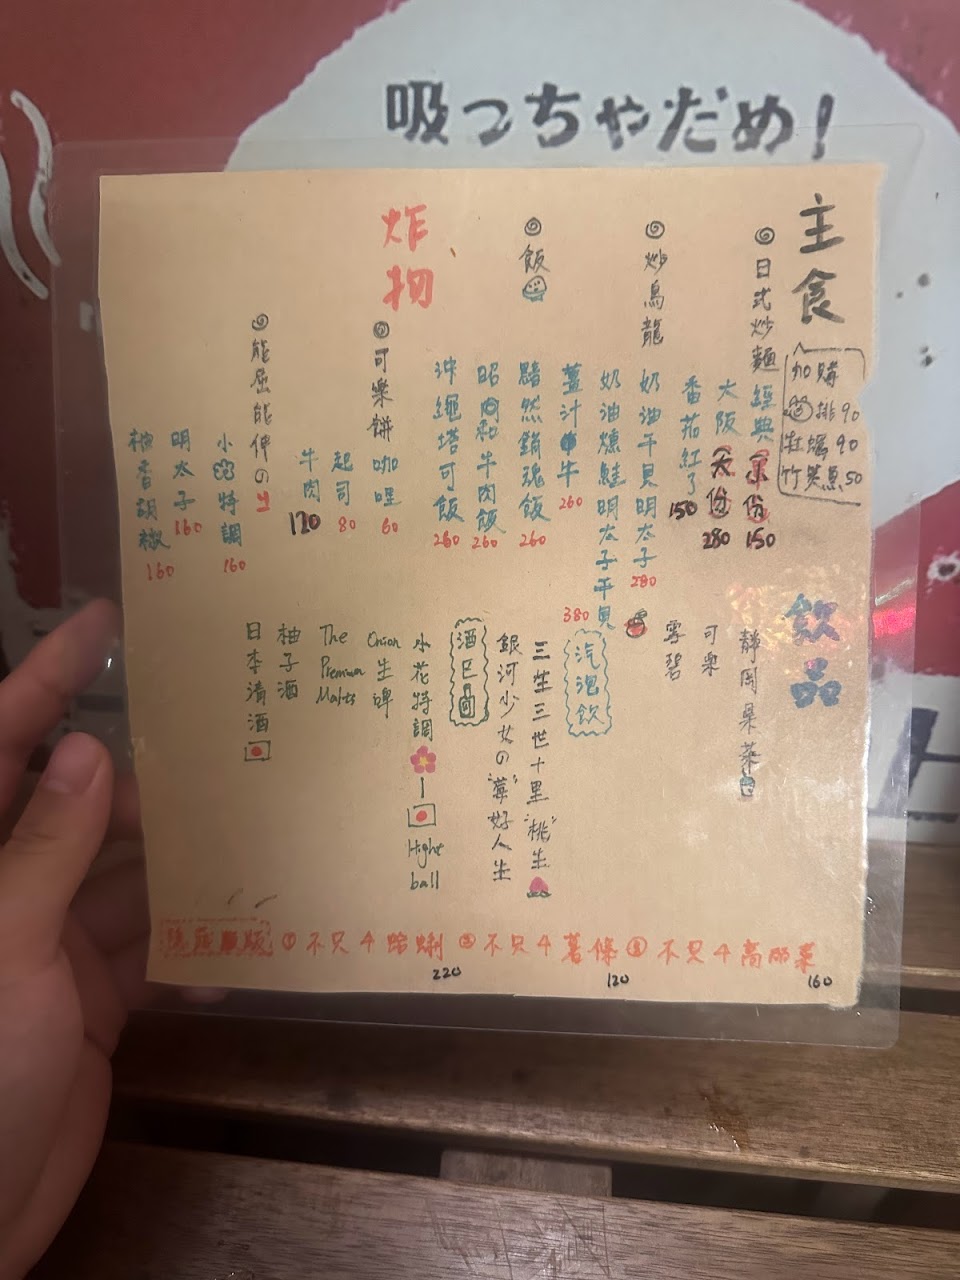 吸っちゃだめ!
主食
加購
排90
牡蠣90
竹筴魚50
日式炒麵
經典
150
大阪
280
番茄紅了
150
炒烏龍
奶油干貝明太子
280
奶油燻鮭明太子干貝
380
飯
薑汁牛
260
黯然銷魂飯
260
昭和牛肉飯
260
沖繩塔可飯
260
炸物
可樂餅
咖哩
60
起司
80
牛肉
120
能屈能伸の
小特調
160
明太子
160
柚香胡椒
160
飲品
靜岡果茶
可樂
雪碧
汽泡飲
三生三世十里"桃"生
銀河少女の"莓"好人生
酒
小花特調
Hight
ball
Orion生啤
The
Premium
Malts
柚子酒
日本清酒
① 不只4蛤蜊 ② 不只4薯條 ③ 不只4高麗菜
220
120
160